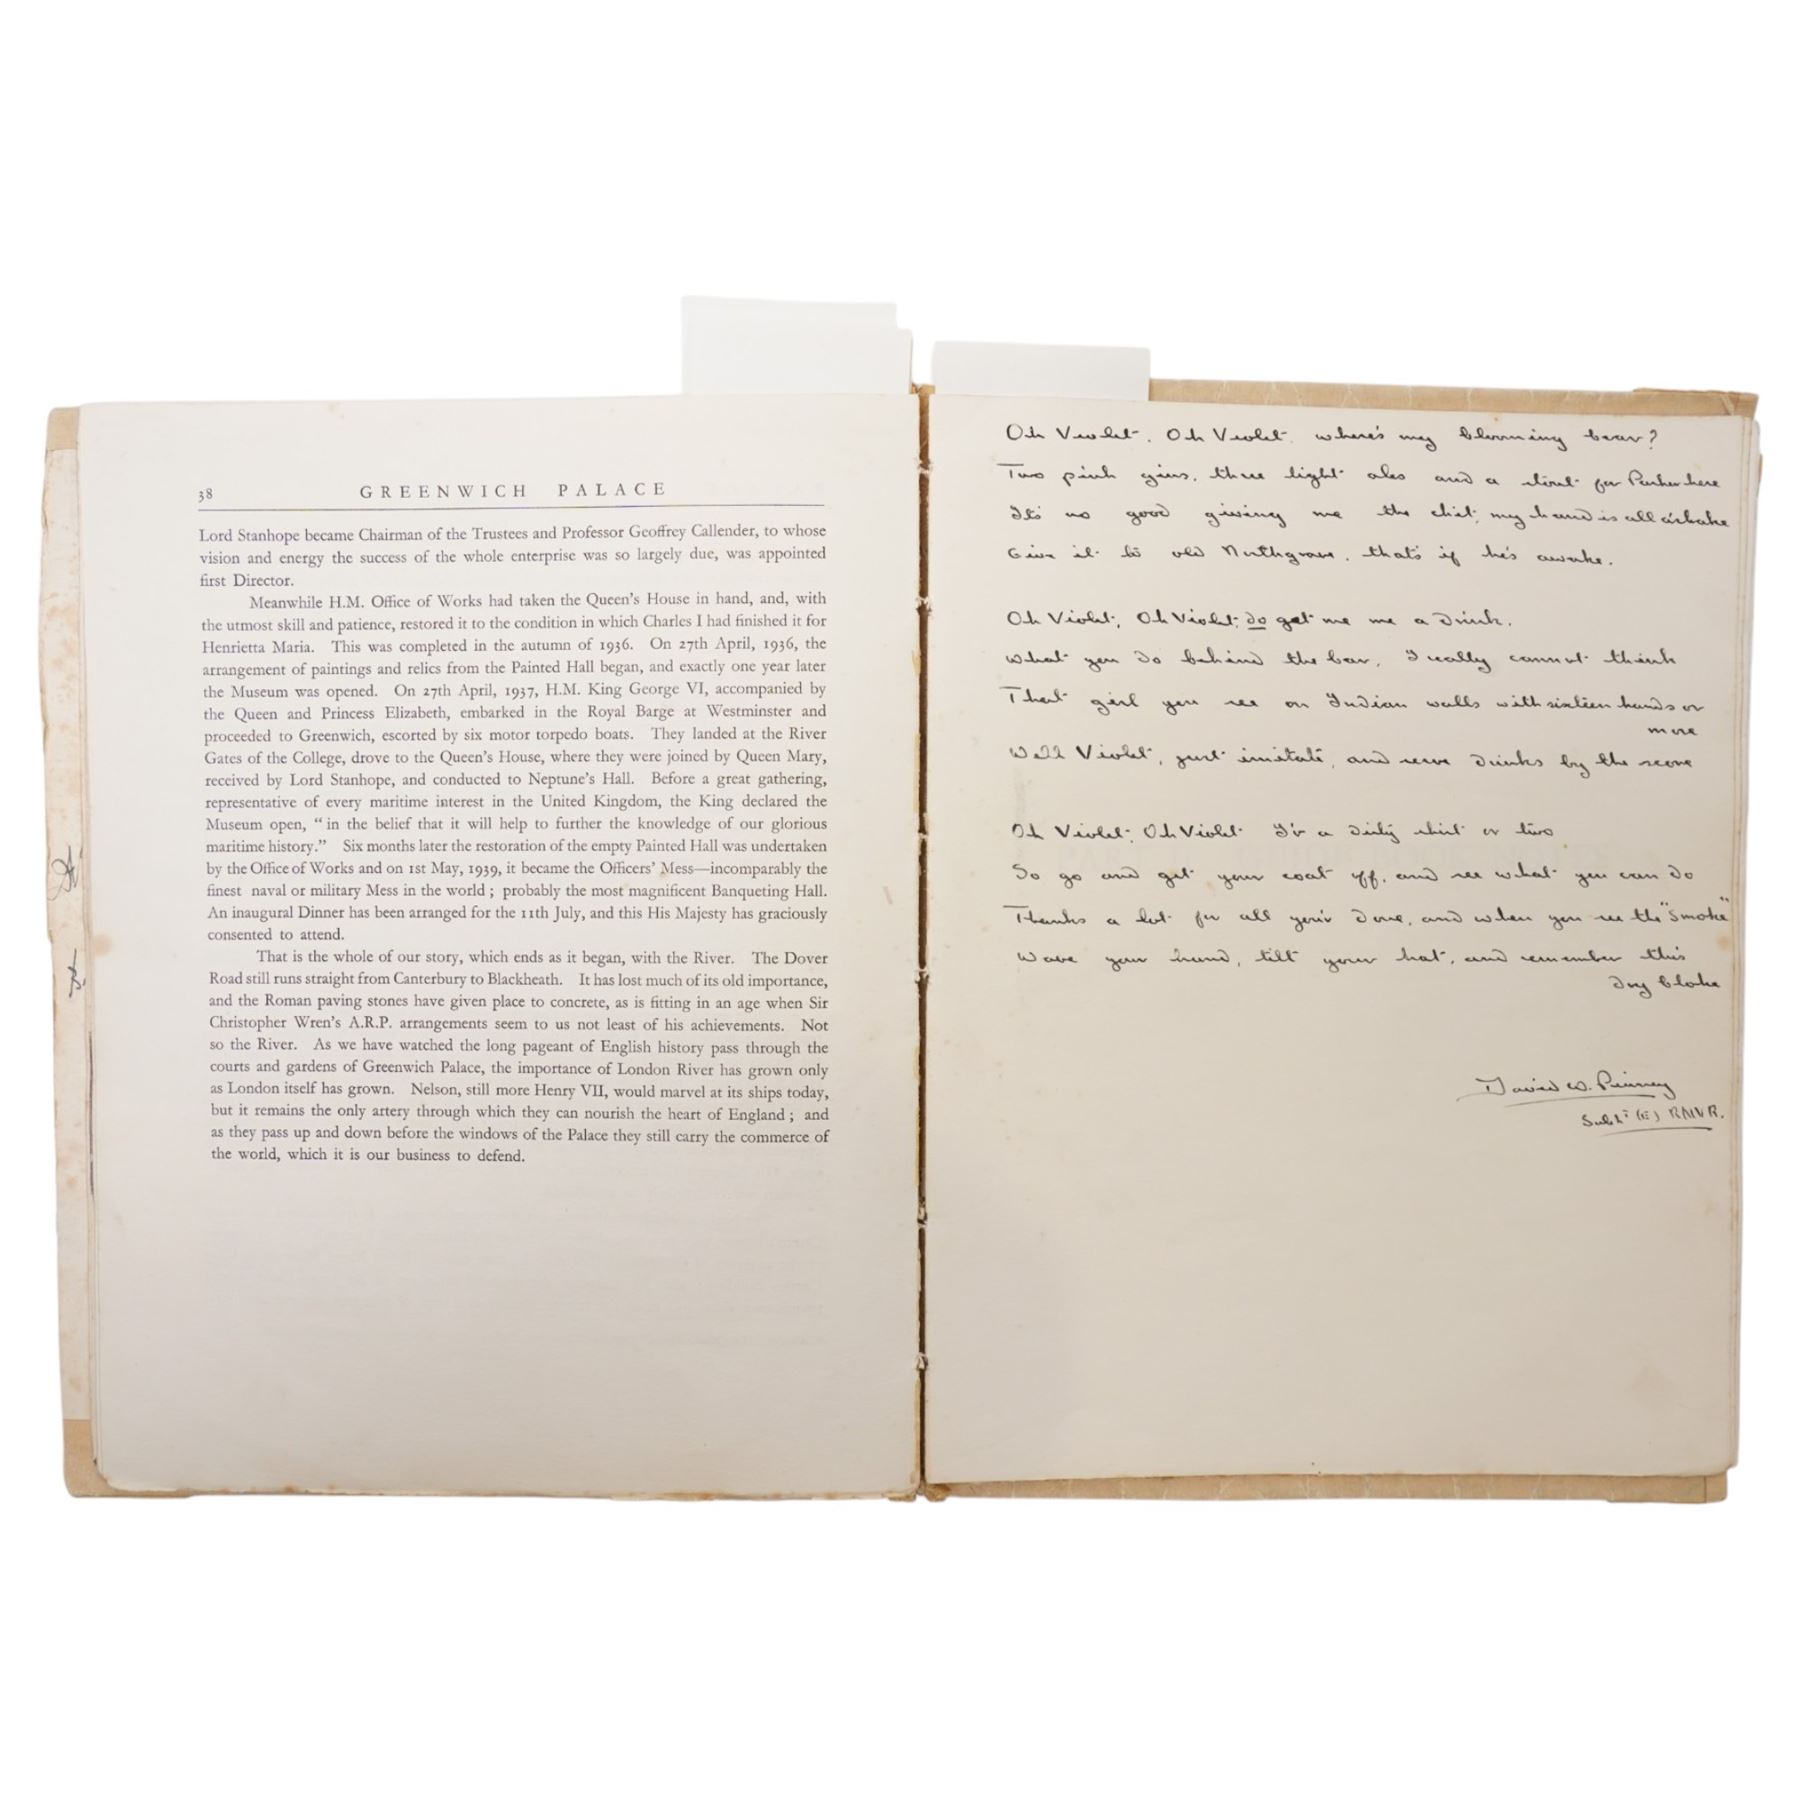 38 GREENWICH PALACE
Lord Stanhope became Chairman of the Trustees and Professor Geoffrey Callender, to whose
vision and energy the success of the whole enterprise was so largely due, was appointed
first Director.
Meanwhile H.M. Office of Works had taken the Queen's House in hand, and, with
the utmost skill and patience, restored it to the condition in which Charles I had finished it for
Henrietta Maria. This was completed in the autumn of 1936. On 27th April, 1936, the
arrangement of paintings and relics from the Painted Hall began, and exactly one year later
the Museum was opened. On 27th April, 1937, H.M. King George VI, accompanied by
the Queen and Princess Elizabeth, embarked in the Royal Barge at Westminster and
proceeded to Greenwich, escorted by six motor torpedo boats. They landed at the River
Gates of the College, drove to the Queen's House, where they were joined by Queen Mary,
received by Lord Stanhope, and conducted to Neptune's Hall. Before a great gathering,
representative of every maritime interest in the United Kingdom, the King declared the
Museum open, "in the belief that it will help to further the knowledge of our glorious
maritime history." Six months later the restoration of the empty Painted Hall was undertaken
by the Office of Works and on 1st May, 1939, it became the Officers' Mess—incomparably the
finest naval or military Mess in the world; probably the most magnificent Banqueting Hall.
An inaugural Dinner has been arranged for the 11th July, and this His Majesty has graciously
consented to attend.
That is the whole of our story, which ends as it began, with the River. The Dover
Road still runs straight from Canterbury to Blackheath. It has lost much of its old importance,
and the Roman paving stones have given place to concrete, as is fitting in an age when Sir
Christopher Wren's A.R.P. arrangements seem to us not least of his achievements. Not
so the River. As we have watched the long pageant of English history pass through the
courts and gardens of Greenwich Palace, the importance of London River has grown only
as London itself has grown. Nelson, still more Henry VII, would marvel at its ships today,
but it remains the only artery through which they can nourish the heart of England; and
as they pass up and down before the windows of the Palace they still carry the commerce of
the world, which it is our business to defend.
Oh Violet, Oh Violet, where's my blooming beer?
Two pink gins, three light ales and a stout for Parker here
It's no good giving me the chit, my hand is all ashake
Give it to old Northgrave, that's if he's awake.
Oh Violet, Oh Violet, do get me me a drink.
What you do behind the bar, I really cannot think
That girl you see on Indian walls with sixteen hands or
more
Well Violet, just imitate, and serve drinks by the score
Oh Violet, Oh Violet I'v a dirty shirt or two
So go and get your coat off, and see what you can do
Thanks a lot for all you'v done, and when you see the "Smoke"
Wave your hand, tilt your hat, and remember this
dry bloke
David W. Pinney
Sublt (E) RNVR.